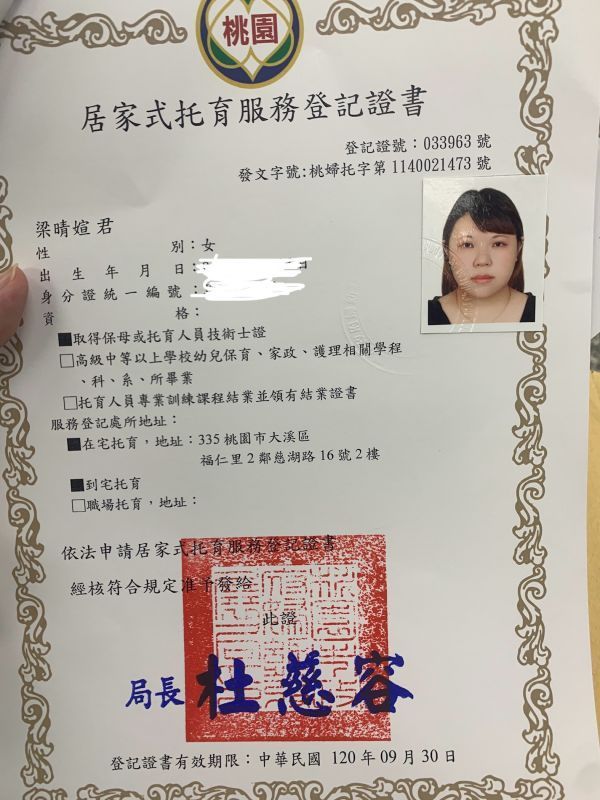 桃園
居家式托育服務登記證書
登記證號：033963 號
發文字號:桃婦托字第 1140021473 號
梁晴媗 君
性別：女
出生年月日：
身分證統一編號
資格：
■取得保母或托育人員技術士證
□高級中等以上學校幼兒保育、家政、護理相關學程
、科、系、所畢業
□托育人員專業訓練課程結業並領有結業證書
服務登記處所地址：
■在宅托育，地址：335 桃園市大溪區
福仁里 2 鄰慈湖路 16 號 2 樓
■到宅托育
□職場托育，地址：
依法申請居家式托育服務登記證書
經核符合規定准予發給
此證
局長 杜慈容
登記證書有效期限：中華民國 120 年 09 月 30 日